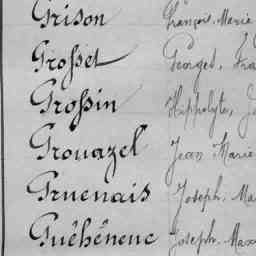 Grison François, Marie
Grosset Georges, Fra
Grossin Hippolyte, J
Grouazel Jean Marie
Gruenais Joseph, Ma
Guéhéneuc Joseph, Max